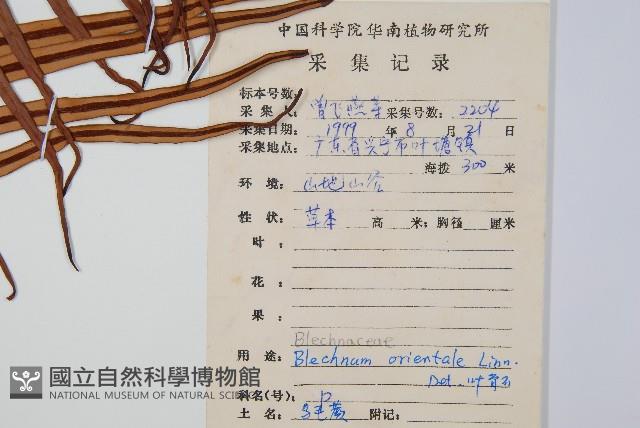 中国科学院华南植物研究所
采集记录
标本号数:
采集人: 曾飞燕等 采集号数: 2204
采集日期: 1999 年 8 月 21 日
采集地点: 广东省兴宁市叶塘镇
海拔 300 米
环境: 山地山谷
性状: 草本 高 米; 胸径 厘米
叶:
花
果:
Blechnaceae
用途: Blechnum orientale Linn.
Det. 叶
科名(号): P
土名: 乌毛蕨 附记:
國立自然科學博物館
NATIONAL MUSEUM OF NATURAL SCIE